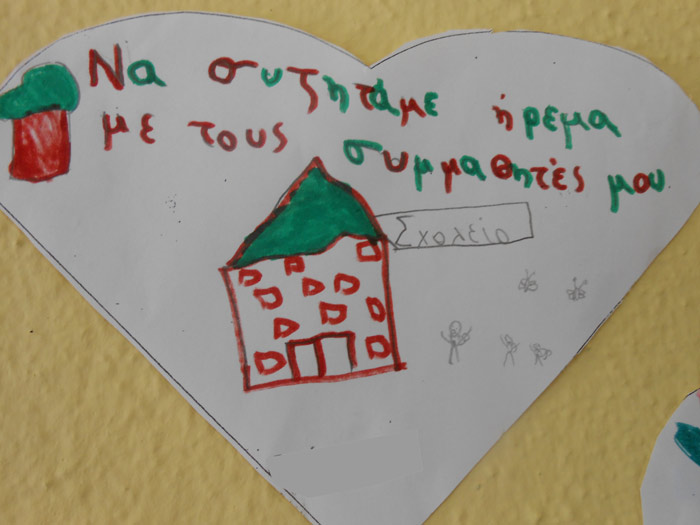 Να συζητάμε ήρεμα
με τους συμμαθητές μου
Σχολείο